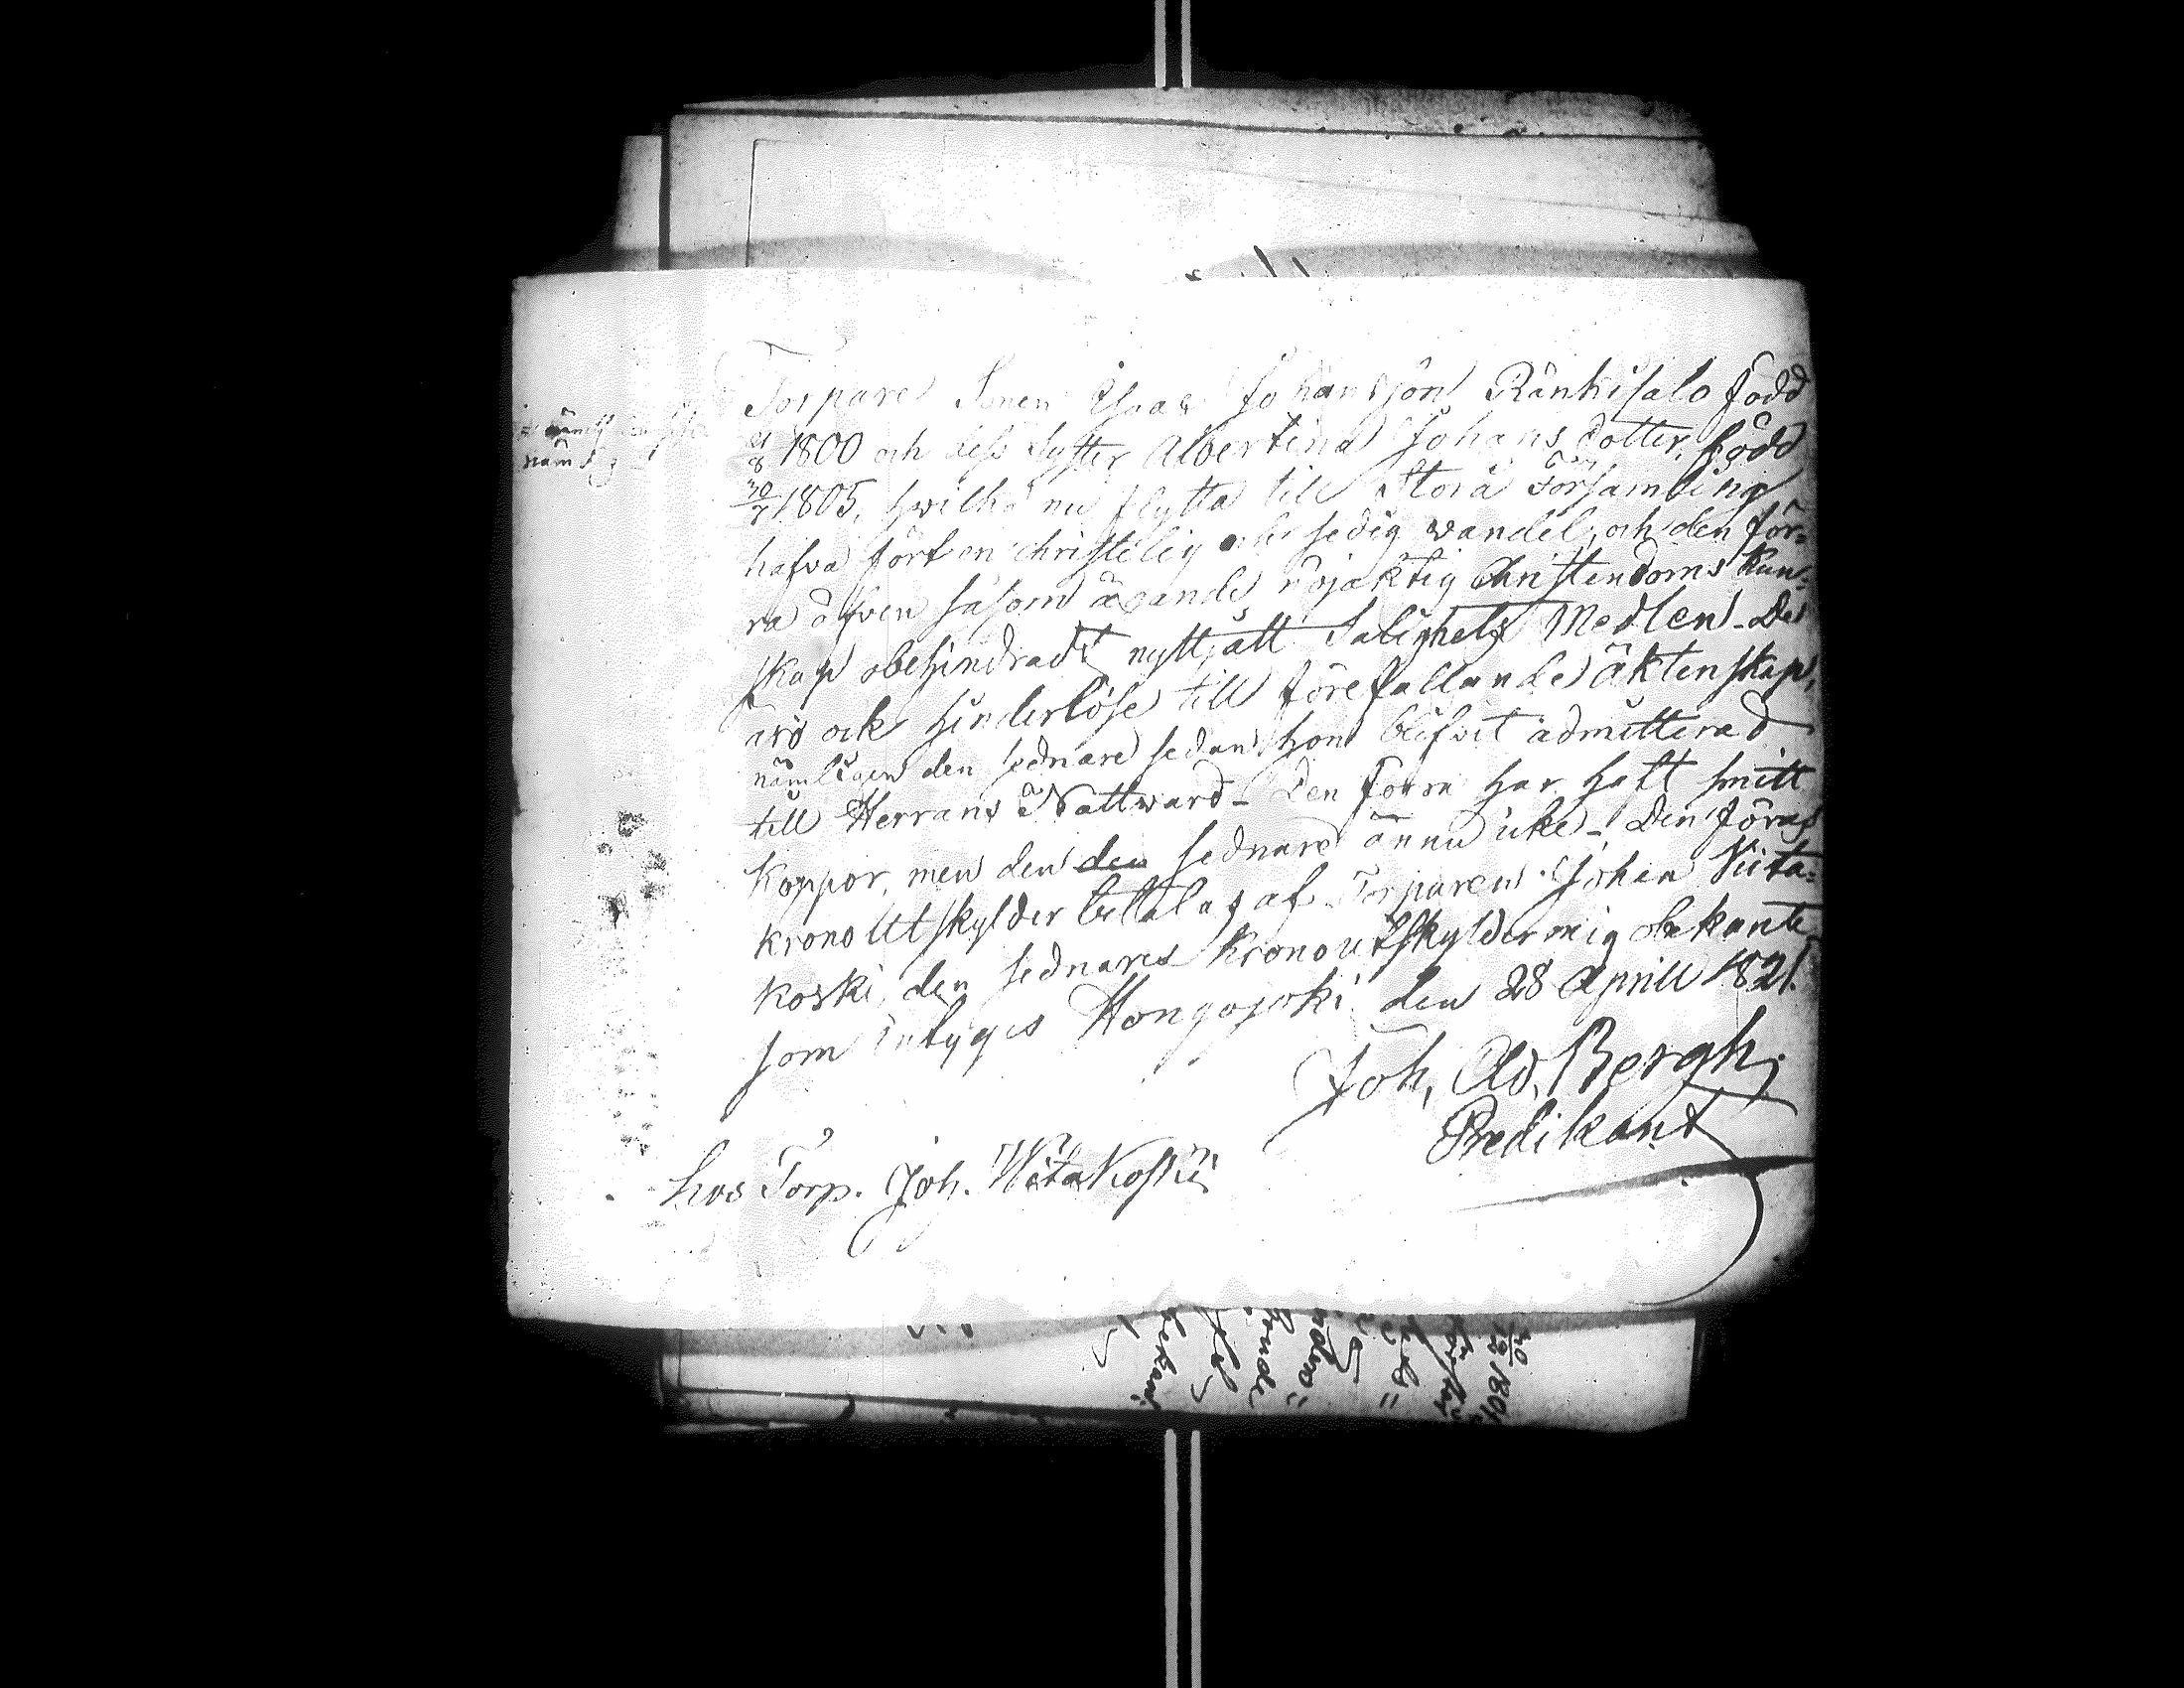 Torpare Sonen Isaac Johansson Ränkisalo född
21/8 1800 och dess Syster Albertina Johans dotter, född
30/7 1805, hwilka nu flytta till Storå Församling
hafva fört en christelig och sedig wandel, och den för-
ra äfven såsom ägande nöjaktig Christendoms kun-
skap obehindradt nyttjatt Salighets Medlen - De
äro ock hinderlöse till förefallande äktenskap,
nämligen den sednare sedan hon blifvit admitterad
till Herrans Nattward - Den förra har haft smitt
koppor, men den den sednare ännu icke - Den förras
krono Utskylder betalas af Torparen Johan Viita-
koski, den sednares krono utskylder mig obekante
som intyges Hongojoki den 28 Aprill 1821.
Joh. Ad. Bergh,
Predikant
hos Torp. Joh. Wiitakoski